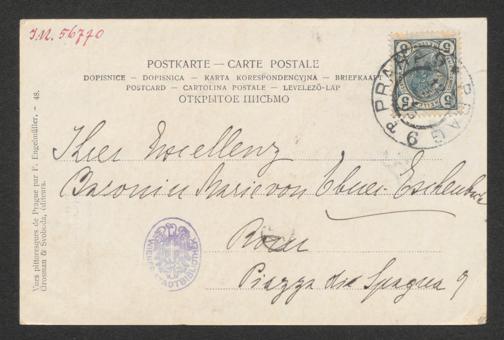 I.N. 56770
POSTKARTE — CARTE POSTALE
DOPISNICE — DOPISNICA — KARTA KORESPONDENCYJNA — BRIEFKAART
POSTCARD — CARTOLINA POSTALE — LEVELEZŐ-LAP
ОТКРЫТОЕ ПИСЬМО
PRAG
PRAHA
5 5
5 5
9
Ihrer Excellenz
Baronin Marie von Ebner-Eschenbach
Rom
Piazza di Spagna 9
WIENER STADTBIBLIOTHEK
Vues pittoresques de Prague par F. Engelmüller. — 48.
Grosman & Svoboda, éditeurs.